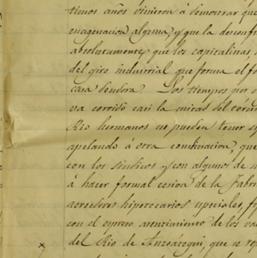 timos años vinieron á demostrar que
imaginacion alguna, y que la desconf
absolutamente que los capitalistas
del giro industrial que forma el fo
casa deudora. Los tiempos por
va corrido casi la mitad del
hermanos no pueden tener
apelando á otra combinacion, que
con los síndicos y con algunos de
á hacer formal cesion de la Fabri
acreedores hipotecarios especiales, f
con el espreso asentimiento de los
del Rio de Anzoátegui, que se